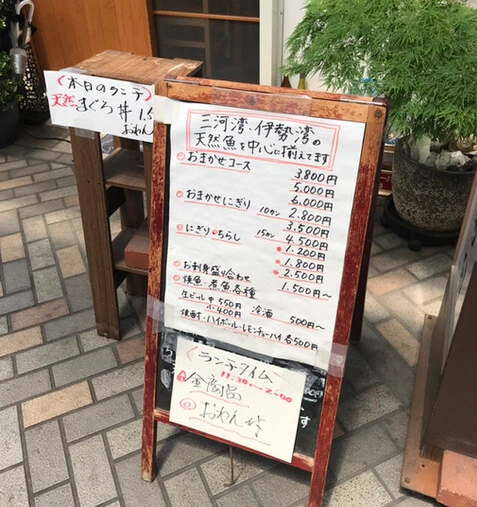 〈本日のランチ〉
天然まぐろ丼 1.5
おわん
三河湾、伊勢湾の
天然魚を中心に揃えてます
おまかせコース 3.800円
5.000円
6.000円
おまかせにぎり 10カン 2.800円
3.500円
15カン 4.500円
にぎり ちらし 1.200円
1.800円
2.500円
お刺身盛り合わせ 1.500円〜
焼魚・煮魚各種 500円〜
生ビール 中 550円 冷酒
小 400円
焼酎・ハイボール・レモンチューハイ 各500円
ランチタイム
11:30〜2:00
全商品
おわん付
す